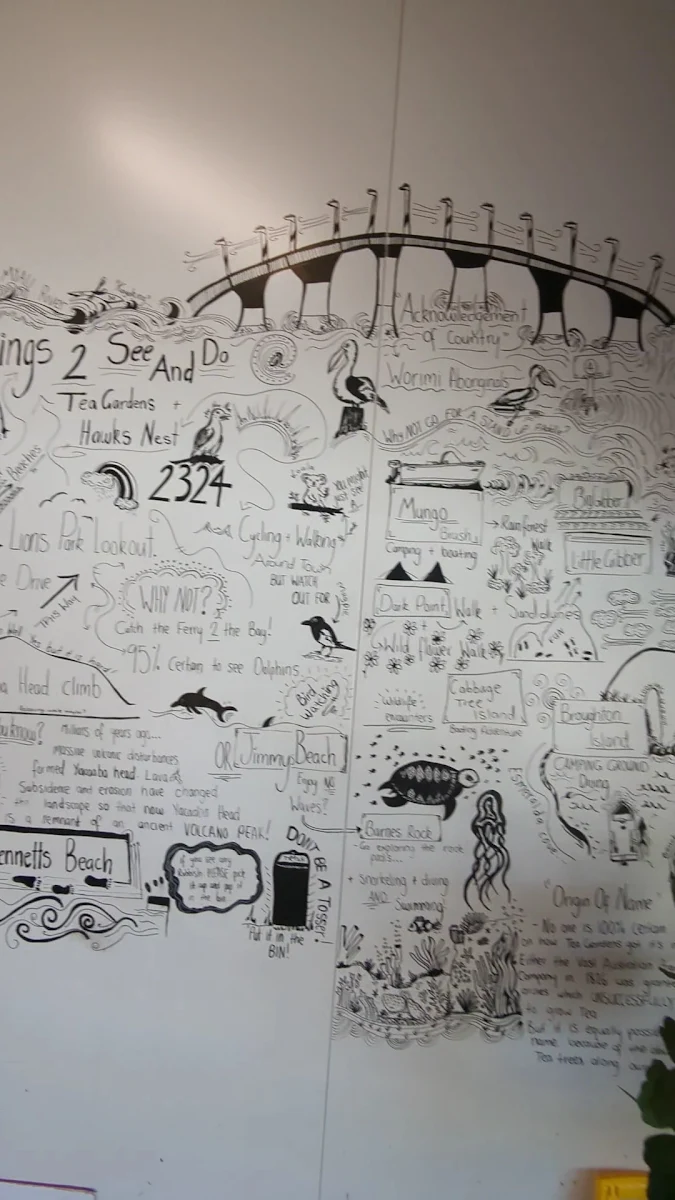 Myall River
ings 2 See And Do
Tea Gardens +
Hawks Nest
2324
Beaches
You might
just see
a
Koala
Lions Park Lookout.
Cycling + Walking
Around Town
BUT WATCH
OUT FOR
e Drive
This Way
WHY NOT?
Catch the Ferry 2 the Bay!
95% Certain to see Dolphins
Head climb
Bird
Watching
you know?
Millions of years ago...
Massive volcanic disturbances
formed Yacaaba head. Lava &
Subsidence and erosion have changed
the landscape so that now Yacaaba Head
is a remnant of an ancient VOLCANO PEAK!
OR Jimmy Beach
Enjoy NO
Waves?
ennetts Beach
if you see any
Rubbish PLEASE pick
it up and pop it
in the bin
DON'T BE A TOSSER!
Put it in the
BIN!
"Acknowledgement
of Country"
Worimi Aboriginals
Why NOT GO FOR A STAND UP Paddle?
Mungo
Brush
Camping + boating
→ Rainforest
Walk
Big Gibber
Little Gibber
Dark Point Walk + Sand dunes
FUN
Wild Flower Walk
Wildlife
encounters
Cabbage
Tree
Island
Boating Adventure
Broughton
Island
CAMPING GROUND
Diving
Esmeralda Cove
Barnes Rock
- Go exploring the rock
pools...
+ Snorkeling + diving
AND Swimming
"Origin Of Name"
- No one is 100% certain
on how Tea Gardens got it's
Either the Vast Australian
Company in 1826 was
which UNSUCCESSFULLY
to grow Tea
But it is equally
name because of the
Tea trees along